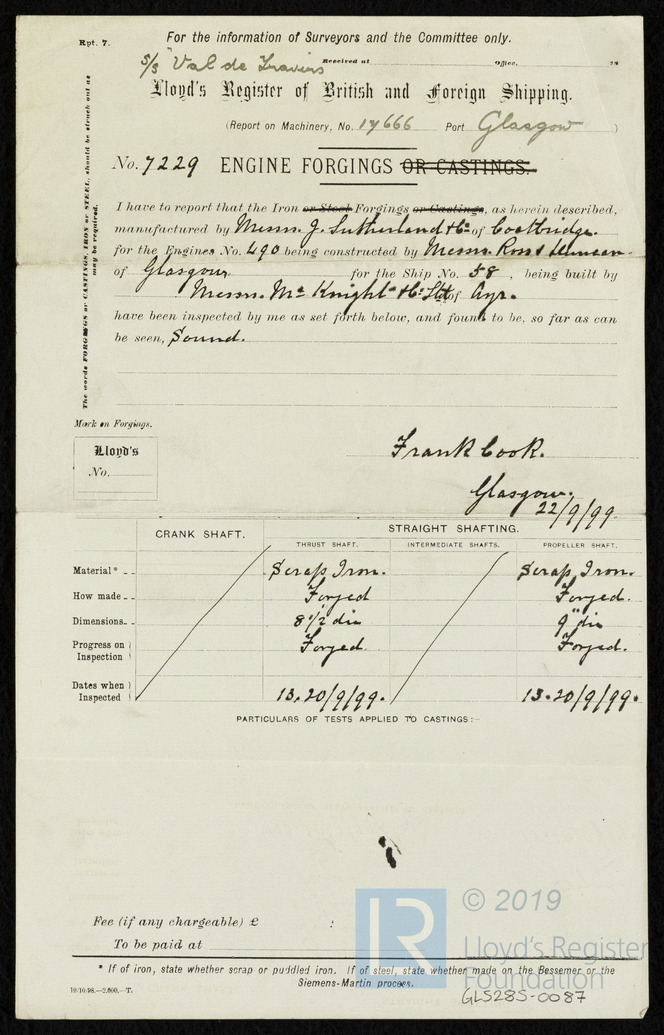 Rpt. 7.
For the information of Surveyors and the Committee only.
S/S "Val de Travers
Received at Office, 18
Lloyd's Register of British and Foreign Shipping.
(Report on Machinery, No. 17666 Port Glasgow )
No. 7229 ENGINE FORGINGS OR CASTINGS.
The words FORGINGS or CASTINGS, IRON or STEEL, should be struck out as
may be required.
I have to report that the Iron or Steel Forgings or Castings, as herein described,
manufactured by Messrs. J. Sutherland & Co. of Coatbridge.
for the Engines No. 490 being constructed by Messrs. Ross & Duncan.
of Glasgow. for the Ship No. 58 , being built by
Messrs. Mc Knight & Co. Ltd of Ayr.
have been inspected by me as set forth below, and found to be, so far as can
be seen, Sound.
Mark on Forgings.
Lloyd's
No.
Frank Cook.
Glasgow.
22/9/99.
CRANK SHAFT. STRAIGHT SHAFTING.
THRUST SHAFT. INTERMEDIATE SHAFTS. PROPELLER SHAFT.
Material* Scrap Iron. Scrap Iron.
How made Forged Forged.
Dimensions 8 1/2 dia 9" dia
Progress on Inspection Forged. Forged.
Dates when Inspected 13.20/9/99. 13.20/9/99.
PARTICULARS OF TESTS APPLIED TO CASTINGS:-
Fee (if any chargeable) £ :
To be paid at
* If of iron, state whether scrap or puddled iron. If of steel, state whether made on the Bessemer or the
Siemens-Martin process.
19/10/98.—2,000.—T.
GLS285-0087
LR
© 2019
Lloyd's Register
Foundation